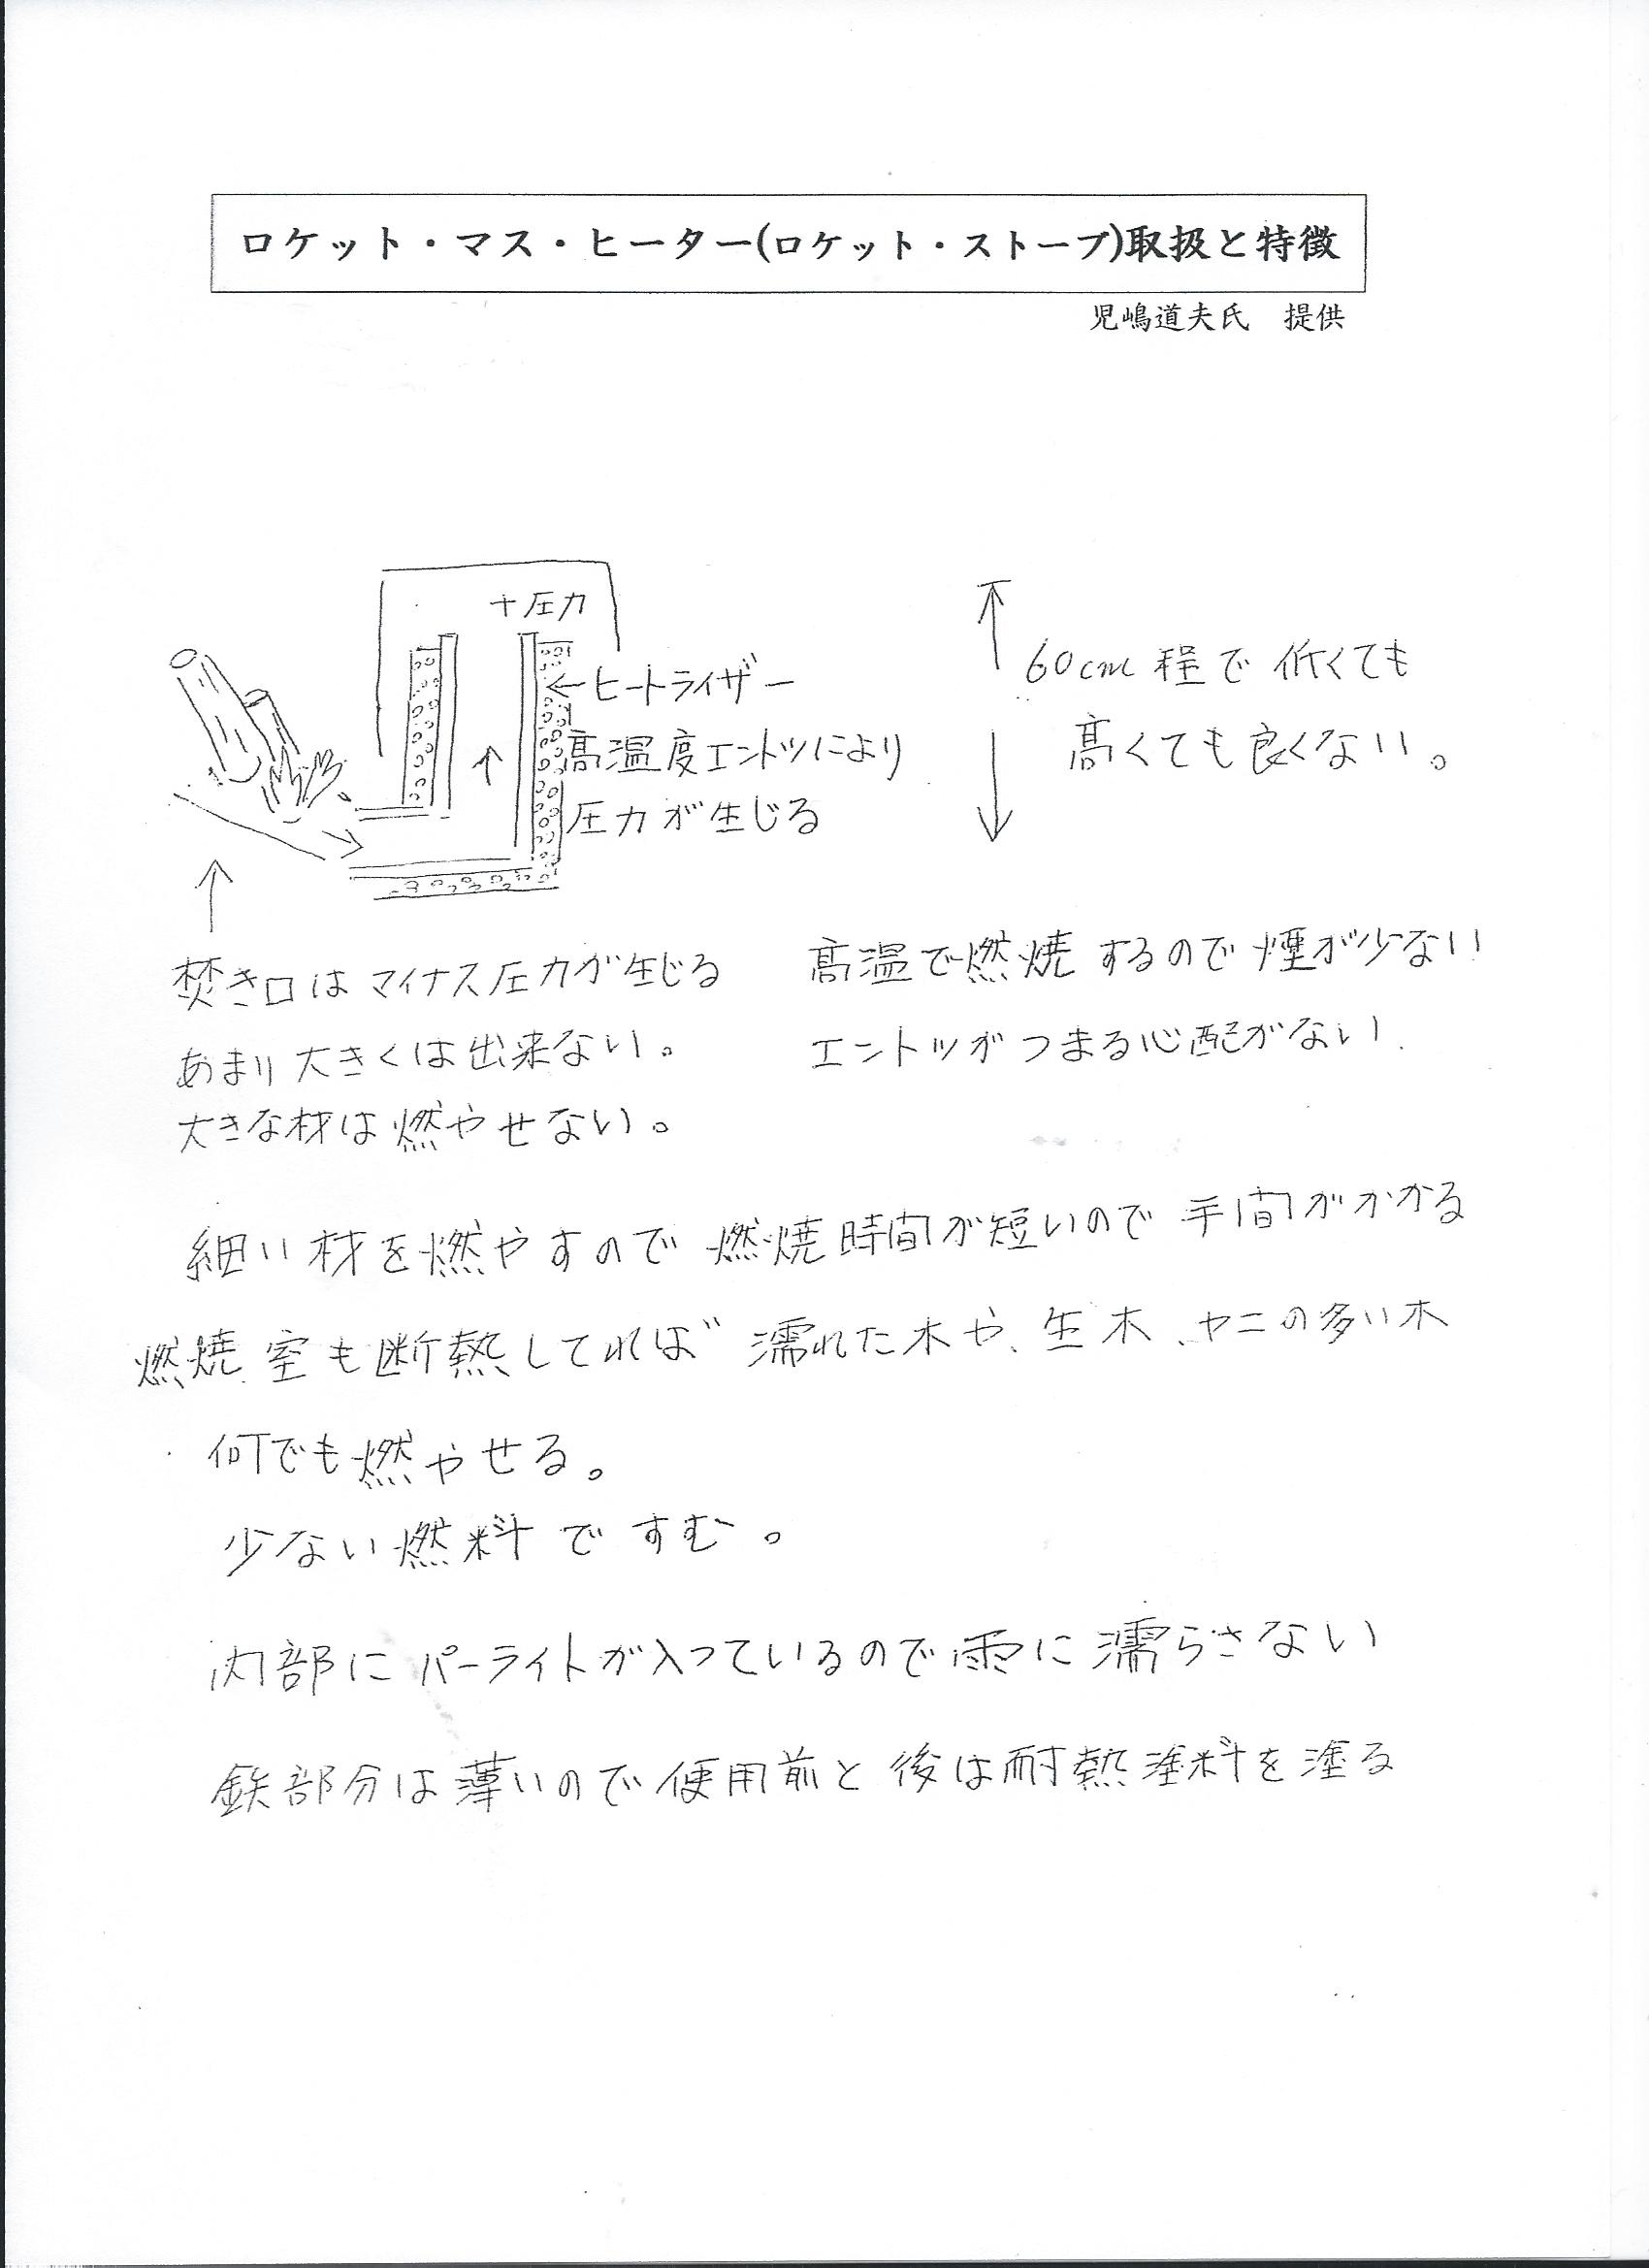 ロケット・マス・ヒーター(ロケット・ストーブ)取扱と特徴
児嶋道夫氏　提供
＋圧力
←ヒートライザー
高温度エントツにより
圧力が生じる
60cm程で低くても
高くても良くない。
焚き口はマイナス圧力が生じる
あまり大きくは出来ない。
大きな材は燃やせない。
高温で燃焼するので煙が少ない
エントツがつまる心配がない.
細い材を燃やすので燃焼時間が短いので手間がかかる
燃焼室も断熱してれば濡れた木や、生木、ヤニの多い木
何でも燃やせる。
少ない燃料ですむ。
内部にパーライトが入っているので雨に濡らさない
鉄部分は薄いので使用前と後は耐熱塗料を塗る